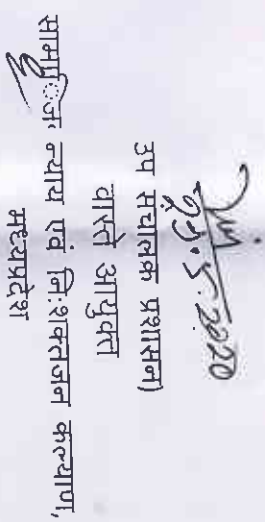 25.5.2020
उप संचालक प्रशासन)
वास्ते आयुक्त
न्याय एवं निःशक्तजन कल्याण,
मध्यप्रदेश